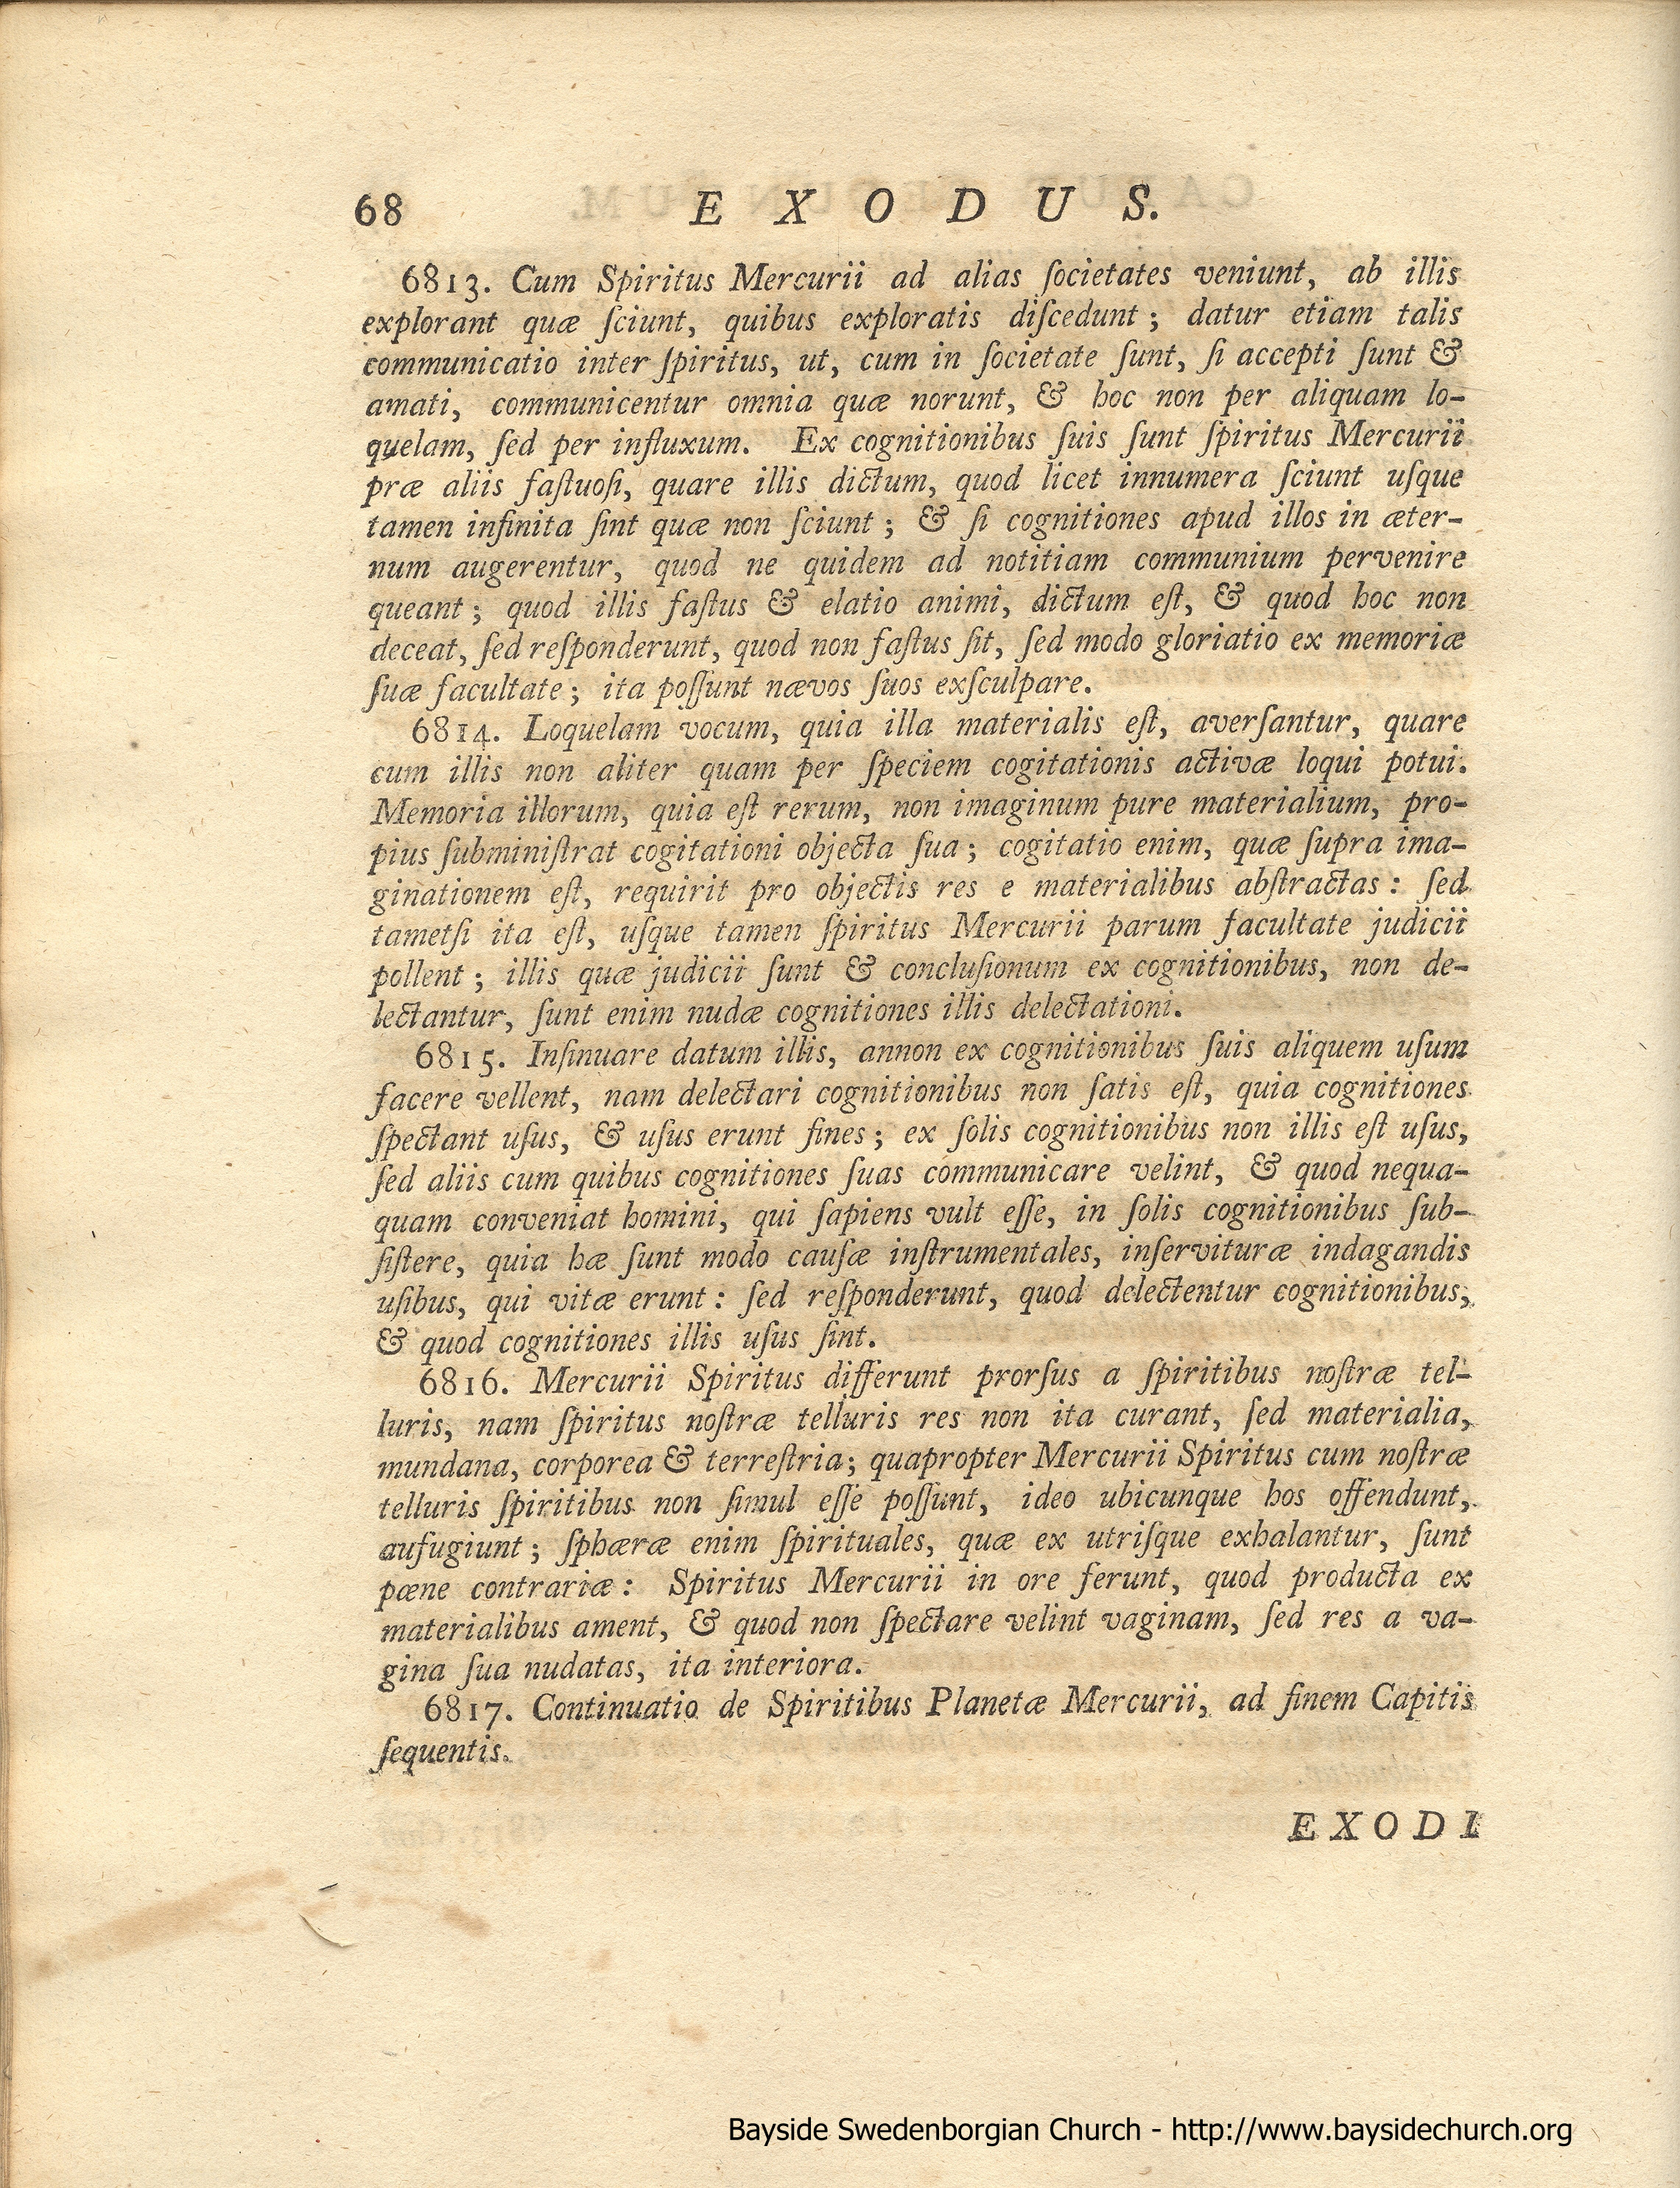 68 E X O D U S.
6813. Cum Spiritus Mercurii ad alias ſocietates veniunt, ab illis
explorant quæ ſciunt, quibus exploratis diſcedunt; datur etiam talis
communicatio inter ſpiritus, ut, cum in ſocietate ſunt, ſi accepti ſunt &
amati, communicentur omnia quæ norunt, & hoc non per aliquam lo-
quelam, ſed per influxum. Ex cognitionibus ſuis ſunt ſpiritus Mercurii
præ aliis faſtuoſi, quare illis dictum, quod licet innumera ſciunt uſque
tamen infinita ſint quæ non ſciunt; & ſi cognitiones apud illos in æter-
num augerentur, quod ne quidem ad notitiam communium pervenire
queant; quod illis faſtus & elatio animi, dictum eſt, & quod hoc non
deceat, ſed reſponderunt, quod non faſtus ſit, ſed modo gloriatio ex memoriæ
ſuæ facultate; ita poſſunt nævos ſuos exſculpare.
6814. Loquelam vocum, quia illa materialis eſt, averſantur, quare
cum illis non aliter quam per ſpeciem cogitationis activæ loqui potui.
Memoria illorum, quia eſt rerum, non imaginum pure materialium, pro-
pius ſubminiſtrat cogitationi objecta ſua; cogitatio enim, quæ ſupra ima-
ginationem eſt, requirit pro objectis res e materialibus abſtractas: ſed
tametſi ita eſt, uſque tamen ſpiritus Mercurii parum facultate judicii
pollent; illis quæ judicii ſunt & concluſionum ex cognitionibus, non de-
lectantur, ſunt enim nudæ cognitiones illis delectationi.
6815. Inſinuare datum illis, annon ex cognitionibus ſuis aliquem uſum
facere vellent, nam delectari cognitionibus non ſatis eſt, quia cognitiones
ſpectant uſus, & uſus erunt fines; ex ſolis cognitionibus non illis eſt uſus,
ſed aliis cum quibus cognitiones ſuas communicare velint, & quod nequa-
quam conveniat homini, qui ſapiens vult eſſe, in ſolis cognitionibus ſub-
ſiſtere, quia hæ ſunt modo cauſæ inſtrumentales, inſervituræ indagandis
uſibus, qui vitæ erunt: ſed reſponderunt, quod delectentur cognitionibus,
& quod cognitiones illis uſus ſint.
6816. Mercurii Spiritus differunt prorſus a ſpiritibus noſtræ tel-
luris, nam ſpiritus noſtræ telluris res non ita curant, ſed materialia,
mundana, corporea & terreſtria; quapropter Mercurii Spiritus cum noſtræ
telluris ſpiritibus non ſimul eſſe poſſunt, ideo ubicunque hos offendunt,
aufugiunt; ſphæræ enim ſpirituales, quæ ex utriſque exhalantur, ſunt
pæne contrariæ: Spiritus Mercurii in ore ferunt, quod producta ex
materialibus ament, & quod non ſpectare velint vaginam, ſed res a va-
gina ſua nudatas, ita interiora.
6817. Continuatio de Spiritibus Planetæ Mercurii, ad finem Capitis
ſequentis.
EXODI
Bayside Swedenborgian Church - http://www.baysidechurch.org